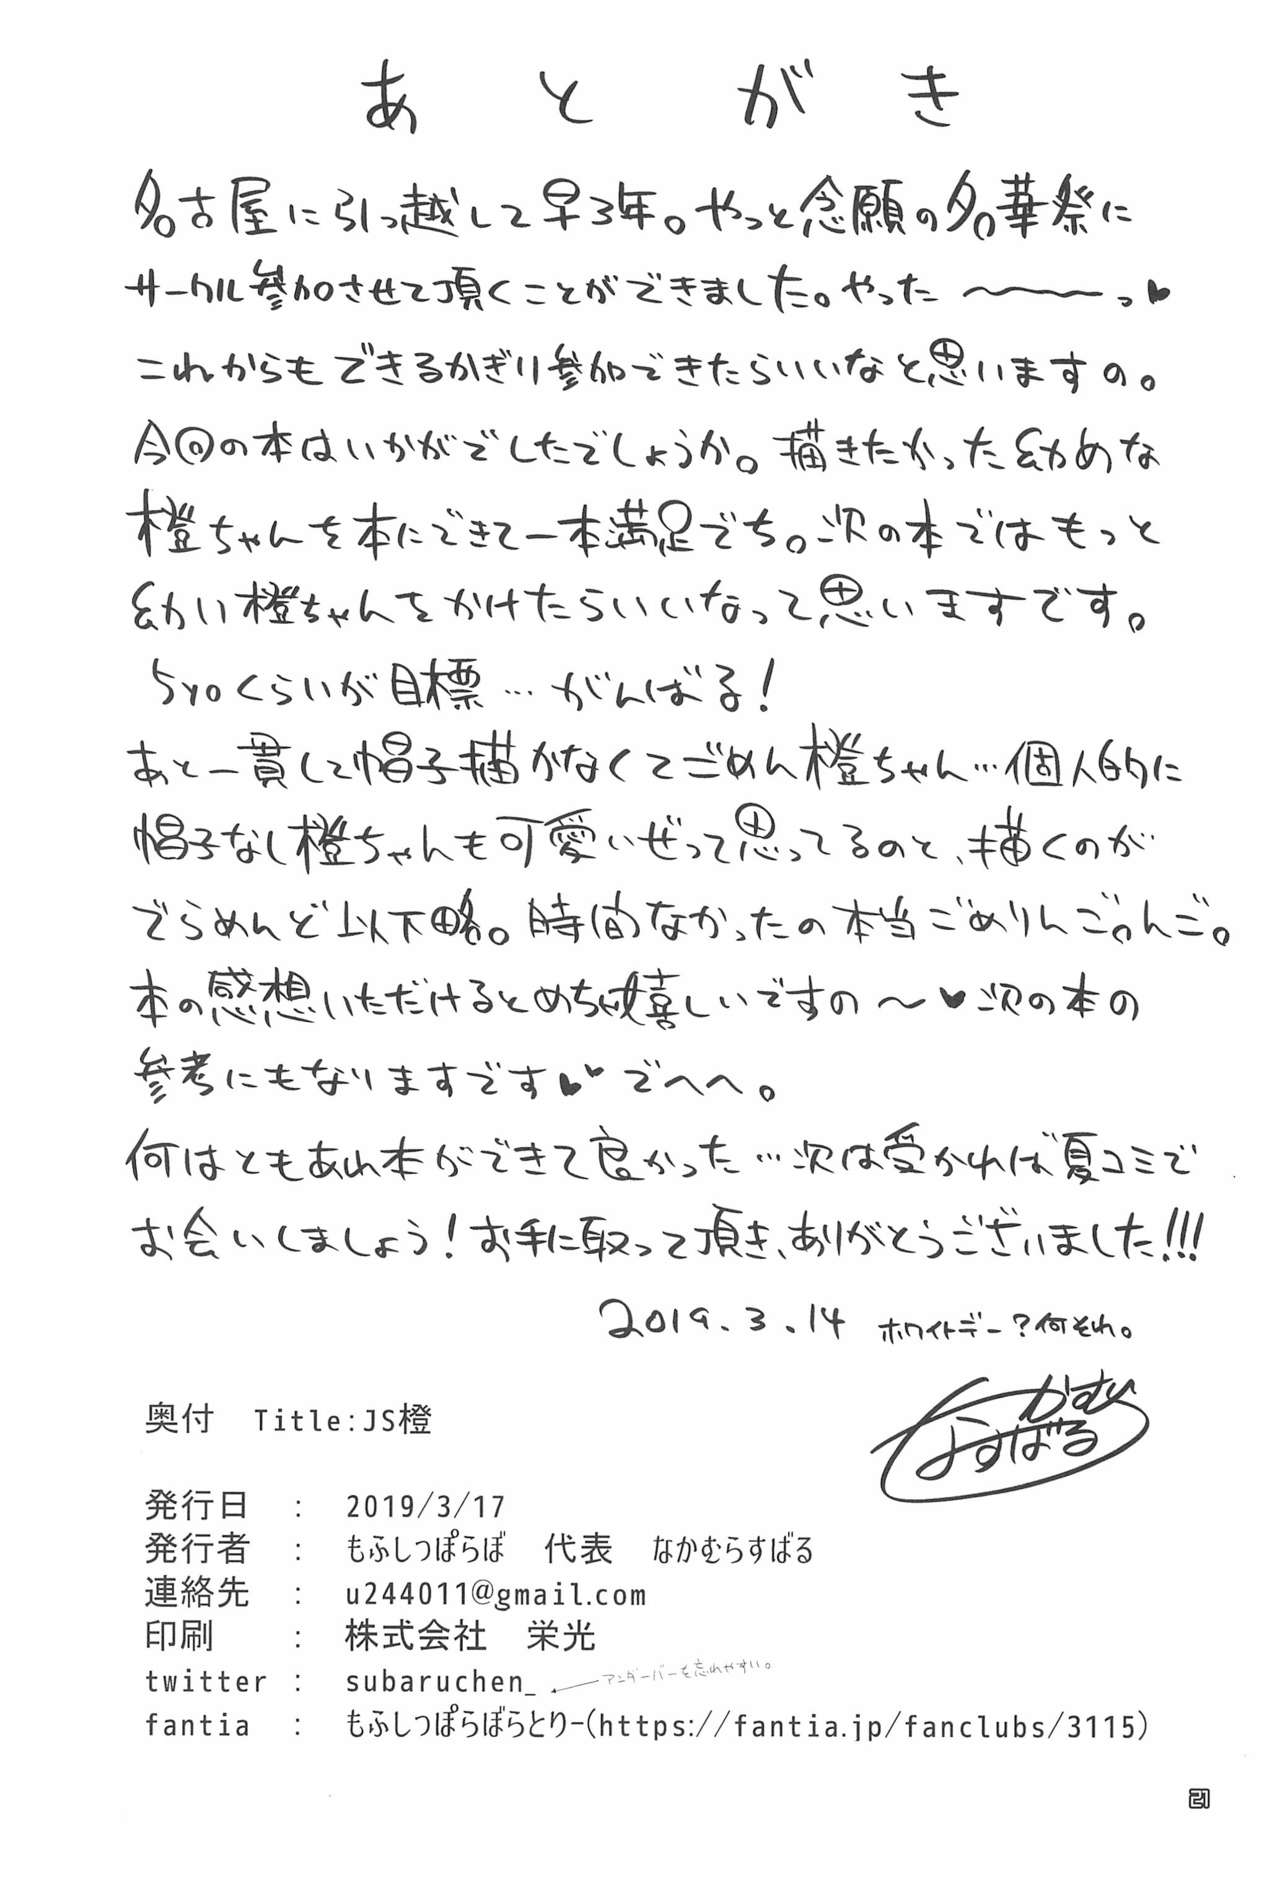 あとがき
名古屋に引っ越して早3年。やっと念願の名華祭に
サークル参加させて頂くことができました。やった〜〜〜っ♥
これからもできるかぎり参加できたらいいなと思いますの。
今回の本はいかがでしたでしょうか。描きたかった幼めな
橙ちゃんを本にできて一本満足でち。次の本ではもっと
幼い橙ちゃんをかけたらいいなって思いますです。
5yoくらいが目標…がんばる!
あと一貫して帽子描かなくてごめん橙ちゃん…個人的に
帽子なし橙ちゃんも可愛いぜって思ってるのと、描くのが
でらめんど以下略。時間なかったの本当ごめりんご。んご。
本の感想いただけるとめちゃ嬉しいですの〜♥次の本の
参考にもなりますです♥♥でへへ。
何はともあれ本ができて良かった…次は受かれば夏コミで
お会いしましょう!お手に取って頂き、ありがとうございました!!!
2019.3.14 ホワイトデー?何それ。
なかむら
すばる
奥付 Title:JS橙
発行日 : 2019/3/17
発行者 : もふしっぽらぼ 代表 なかむらすばる
連絡先 : u244011@gmail.com
印刷 : 株式会社 栄光
twitter : subaruchen_ ←アンダーバーを忘れやすい。
fantia : もふしっぽらぼらとりー(https://fantia.jp/fanclubs/3115)
21